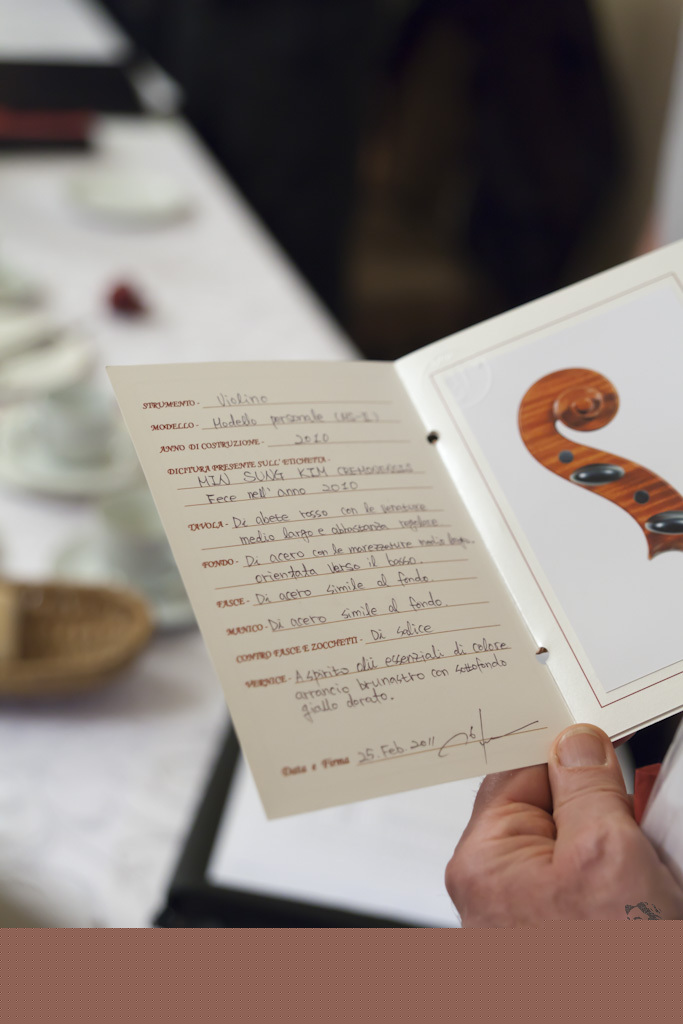 STRUMENTO - Violino
MODELLO - Modello personale
ANNO DI COSTRUZIONE - 2010
DICITURA PRESENTE SULL' ETICHETTA -
MIN SUNG KIM CREMONENSIS
Fece nell' anno 2010
TAVOLA - Di abete rosso con le venature
medio largo e abbastanza regolare
FONDO - Di acero con le marezzature medio largo,
orientata verso il basso.
FASCE - Di acero simile al fondo.
MANICO - Di acero simile al fondo.
CONTRO FASCE E ZOCCHETTI - Di salice
VERNICE - A spirito olii essenziali di colore
arrancio brunastro con sottofondo
giallo dorato.
Data e Firma 25. Feb. 2011